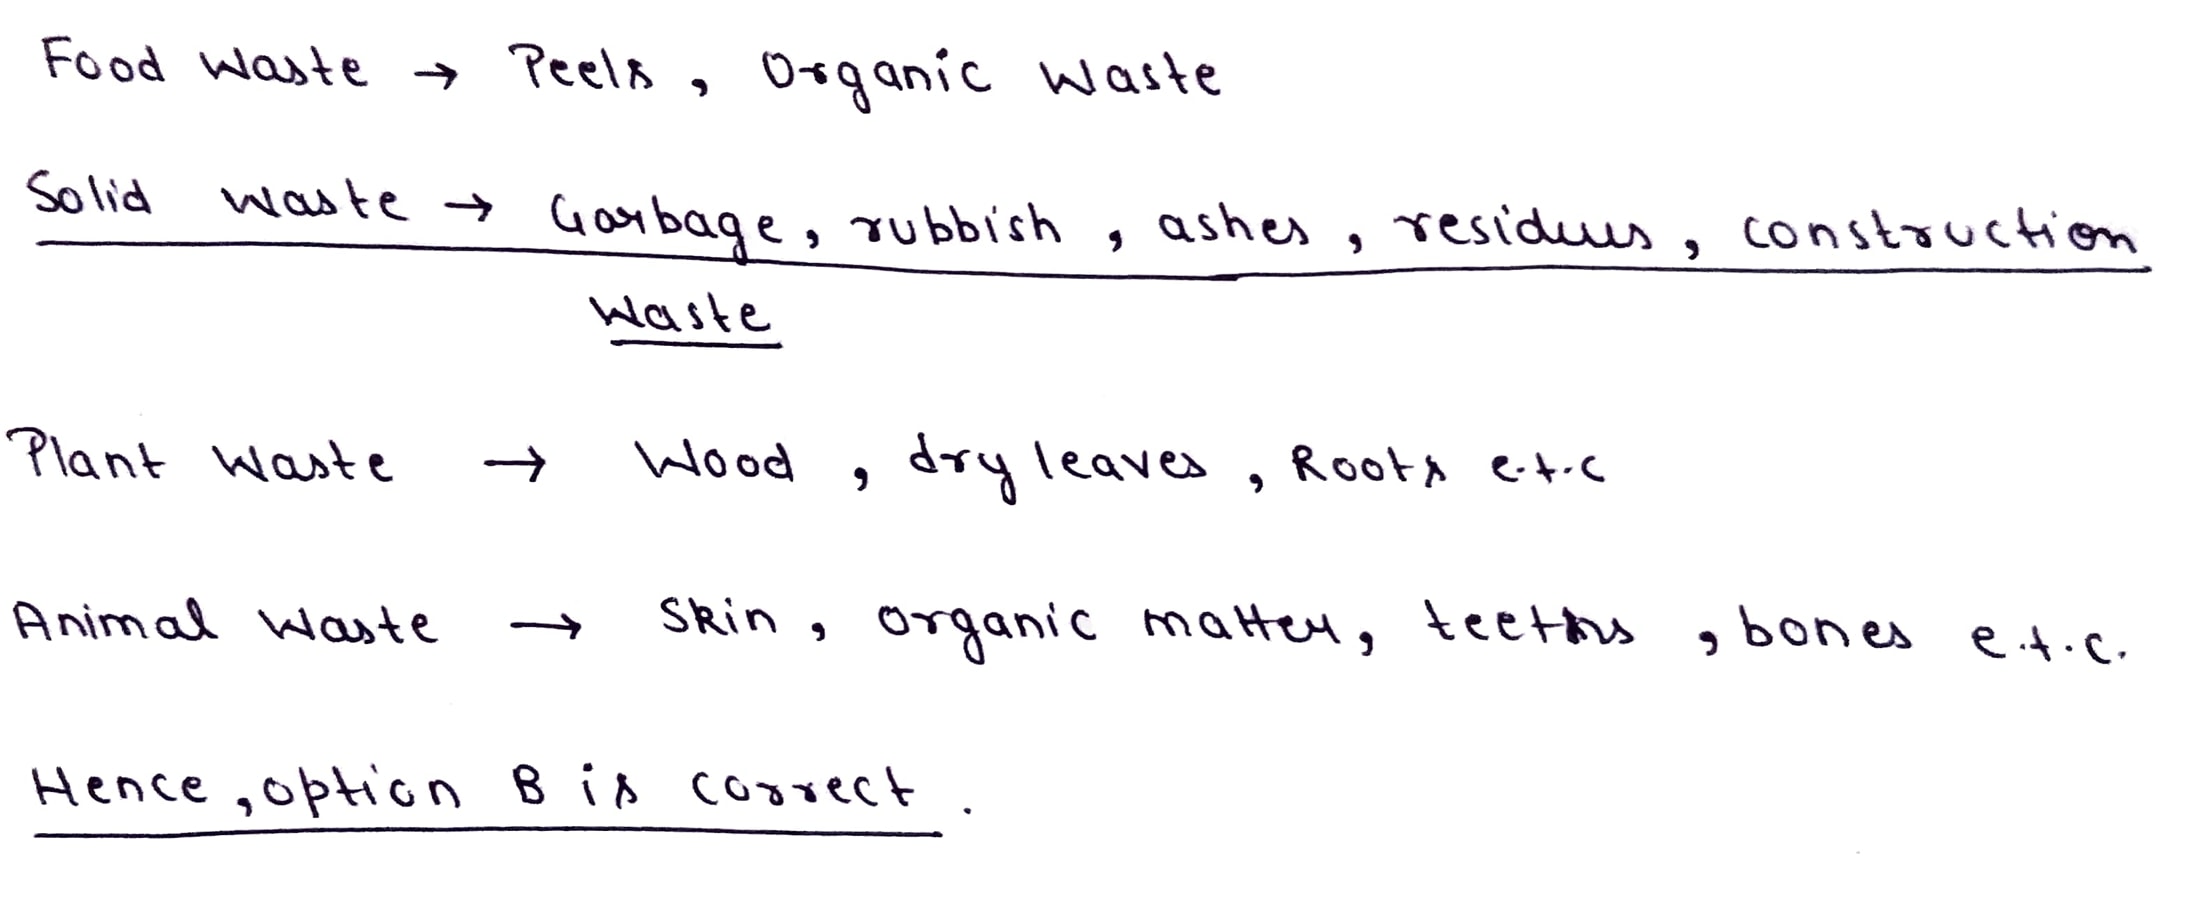 Food Waste → Peels, Organic Waste
Solid waste → Garbage, rubbish, ashes, residues, construction
Waste
Plant Waste → Wood, dry leaves, Roots e.t.c
Animal Waste → Skin, organic matter, teeths, bones e.t.c.
Hence, option B is correct.